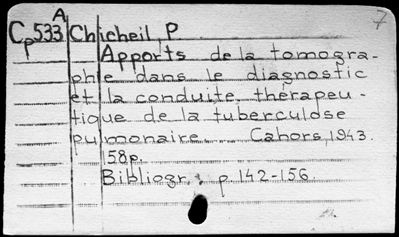 A 7
Cp533 Chicheil, P
Apports de la tomogra-
phie dans le diagnostic
et la conduite thérapeu-
tique de la tuberculose
pulmonaire. Cahors, 1943.
158p.
Bibliogr. : p. 142-156.